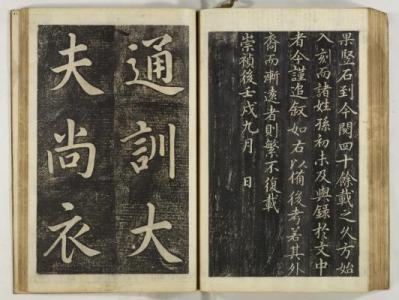 果竪石到今閱四十餘載之久方始
入刻而諸姓孫初未及與錄於文中
者今謹追敘如右以備後考若其外
裔而漸遠者則繁不復載
崇禎後壬戌九月 日
通訓大
夫尚衣